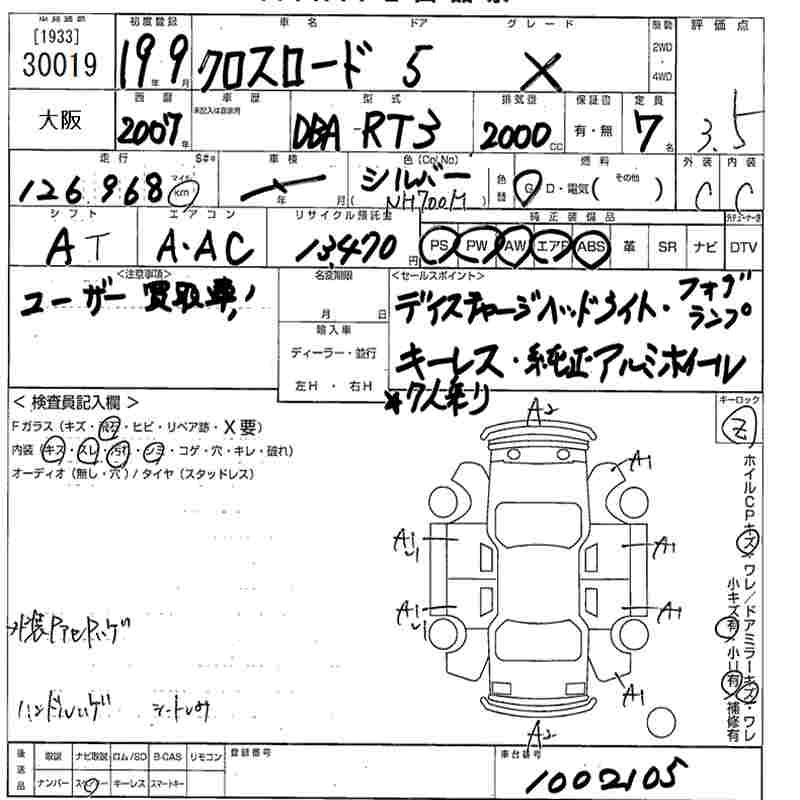 [1933]
30019
初度登録
19 9
年 月
車名
クロスロード
ドア
5
グレード
X
駆動
2WD
4WD
評価点
3.5
大阪
西暦
2007年
車歴
未記入は自家用
型式
DBA-RT3
排気量
2000cc
保証書
有・無
定員
7名
走行
S#*
126,968
マイル
km
車検
年 月
色(Col No)
シルバー
(NH700M)
色替
燃料
G D・電気( その他 )
外装
C
内装
C
シフト
AT
エアコン
A・AC
リサイクル預託金
13,470円
純正装備品
PS PW AW エアB ABS 革 SR ナビ DTV
<注意事項>
ユーザー買取車!
名変期限
月 日
輸入車
ディーラー・並行
左H ・ 右H
<セールスポイント>
ディスチャージヘッドライト・フォグランプ
キーレス・純正アルミホイール
*7人乗り
<検査員記入欄>
Fガラス(キズ・飛石・ヒビ・リペア跡・X要)
内装(キズ・スレ・汚れ・シミ・コゲ・穴・キレ・破れ)
オーディオ(無し・穴)/タイヤ(スタッドレス)
キーロック
A2
A1
A1
A1
A1
A1
A1
A2
ホイルCPキズ・ワレ/ドアミラーキズ・ワレ
小キズ有 小U有 補修有
後送品
取説 ナビ取説 ロム/SD B-CAS リモコン
ナンバー スペアキー キーレス スマートキー
登録番号
車台番号
1002105